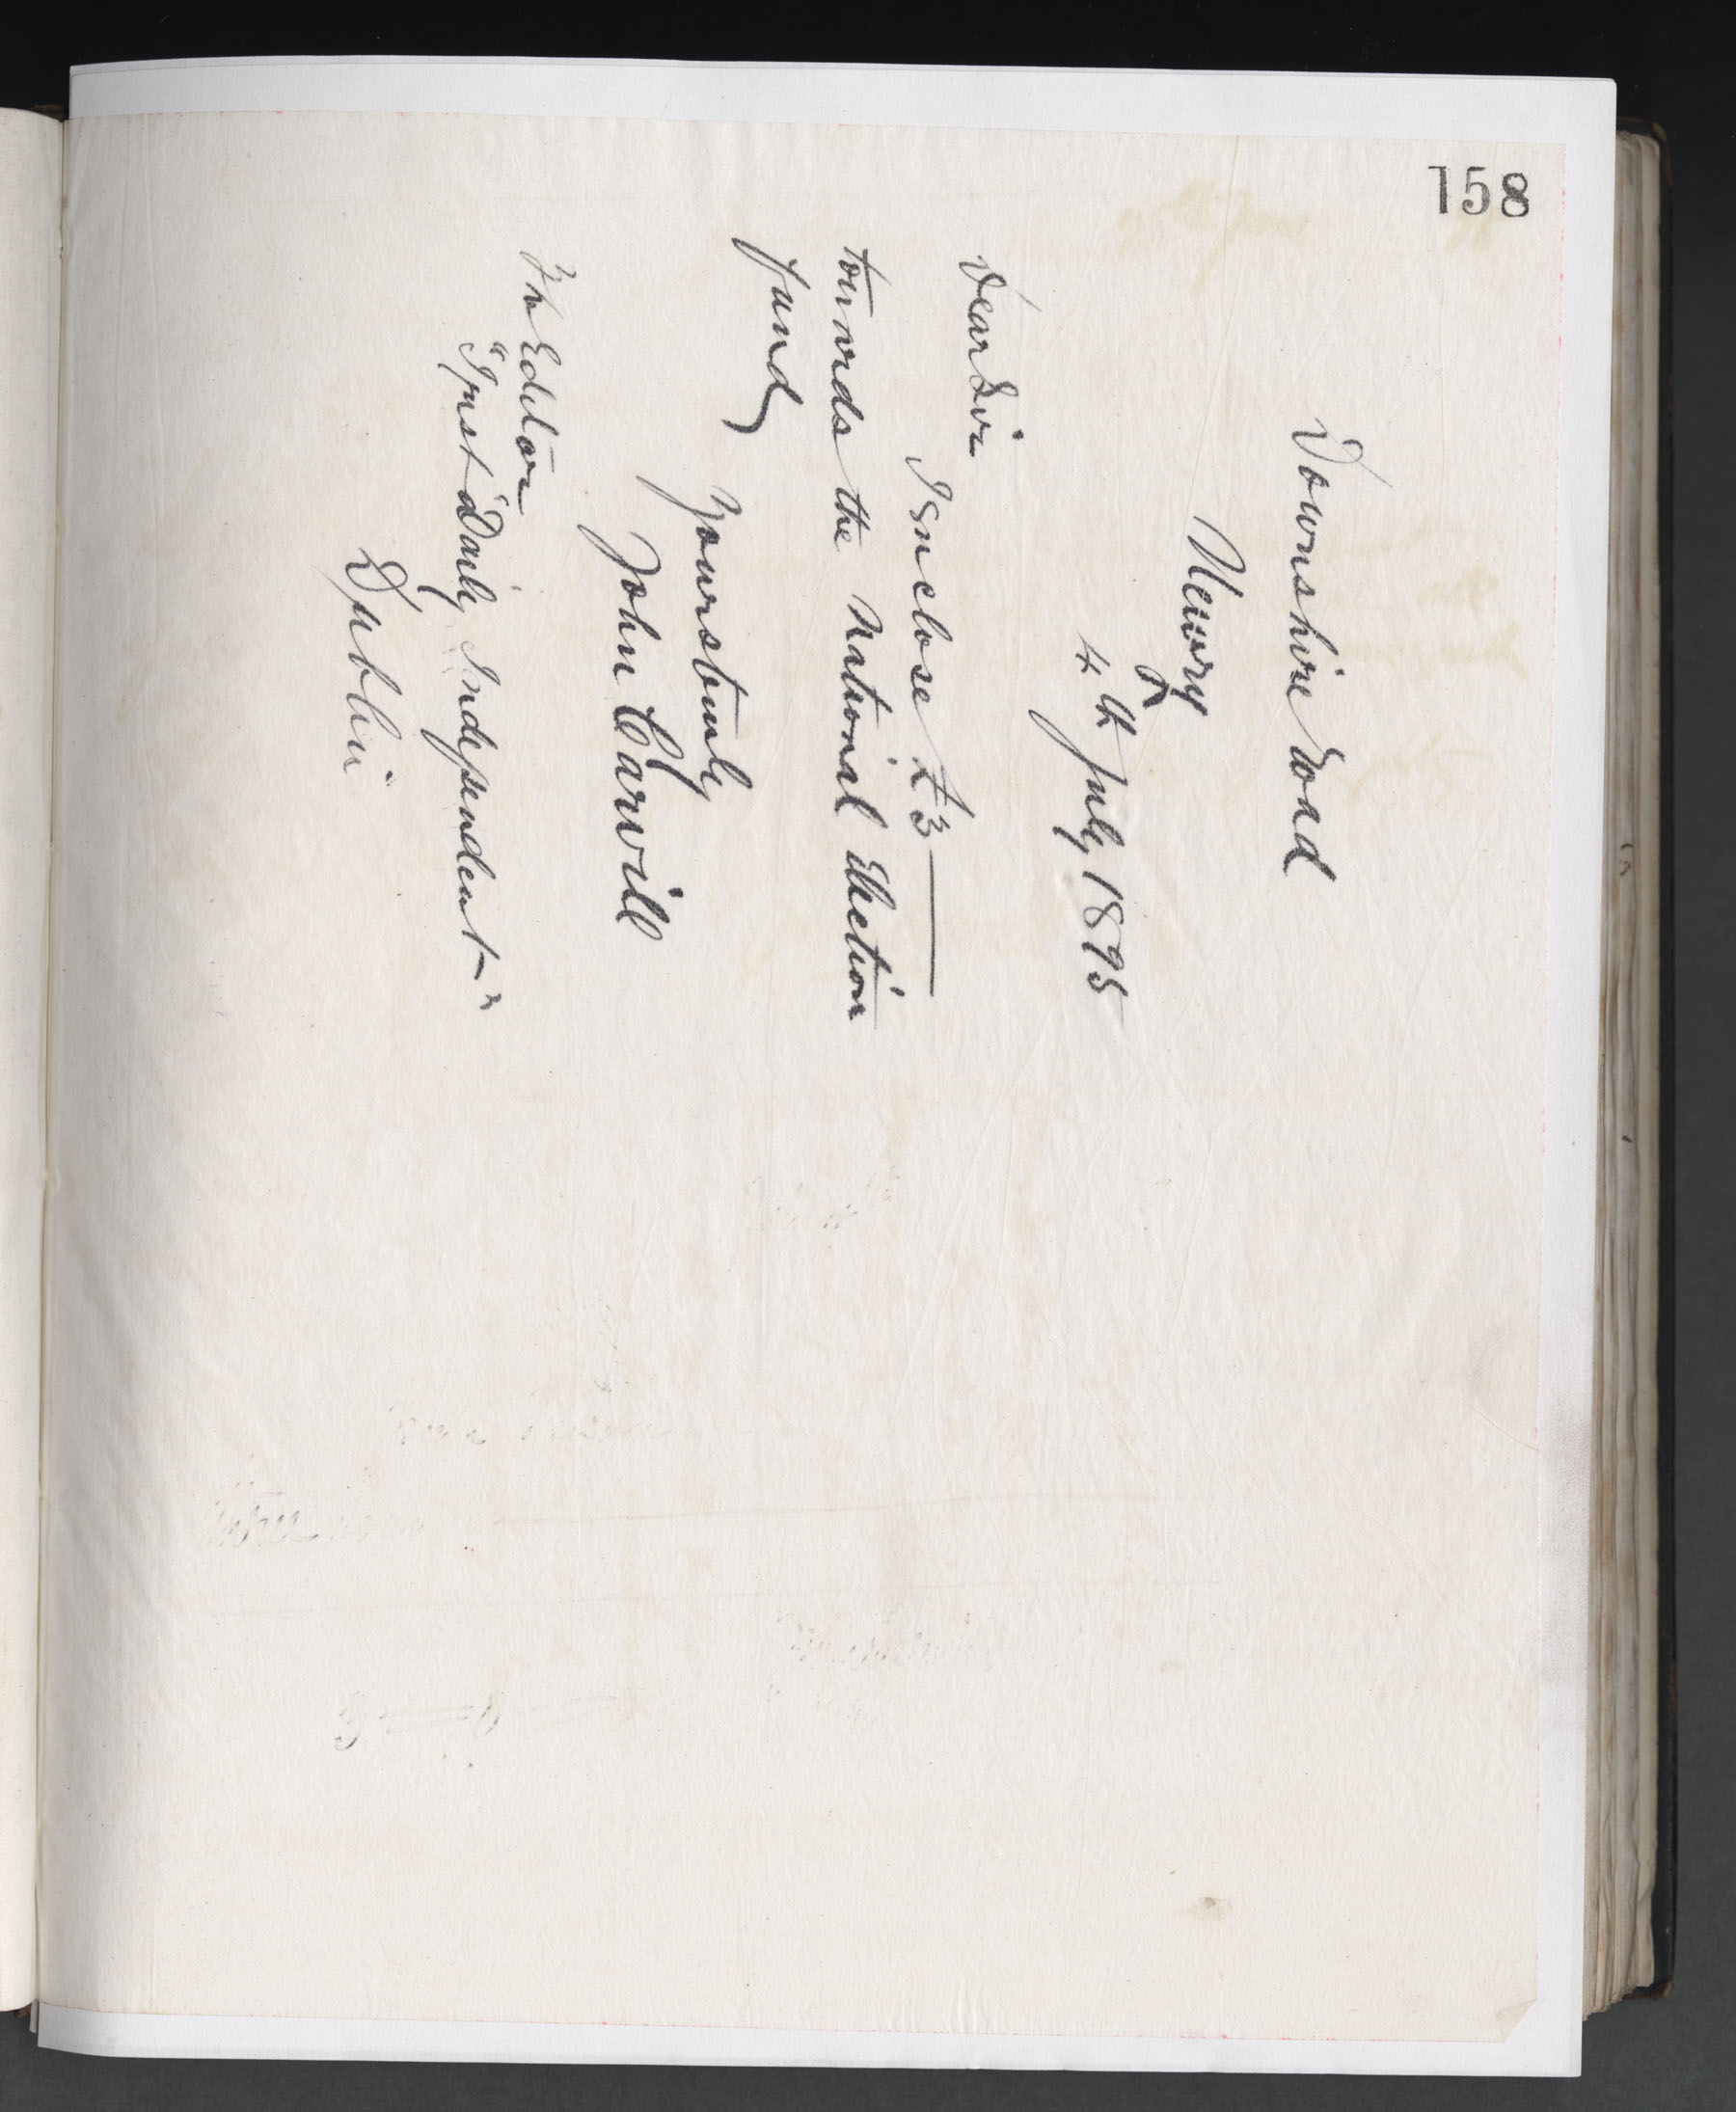 158
Downshire Road
Newry
4th July 1895
Dear Sir
I enclose £3
towards the National Election
fund
Yours truly
John Carvill
The Editor
"Irish Daily Independent"
Dublin